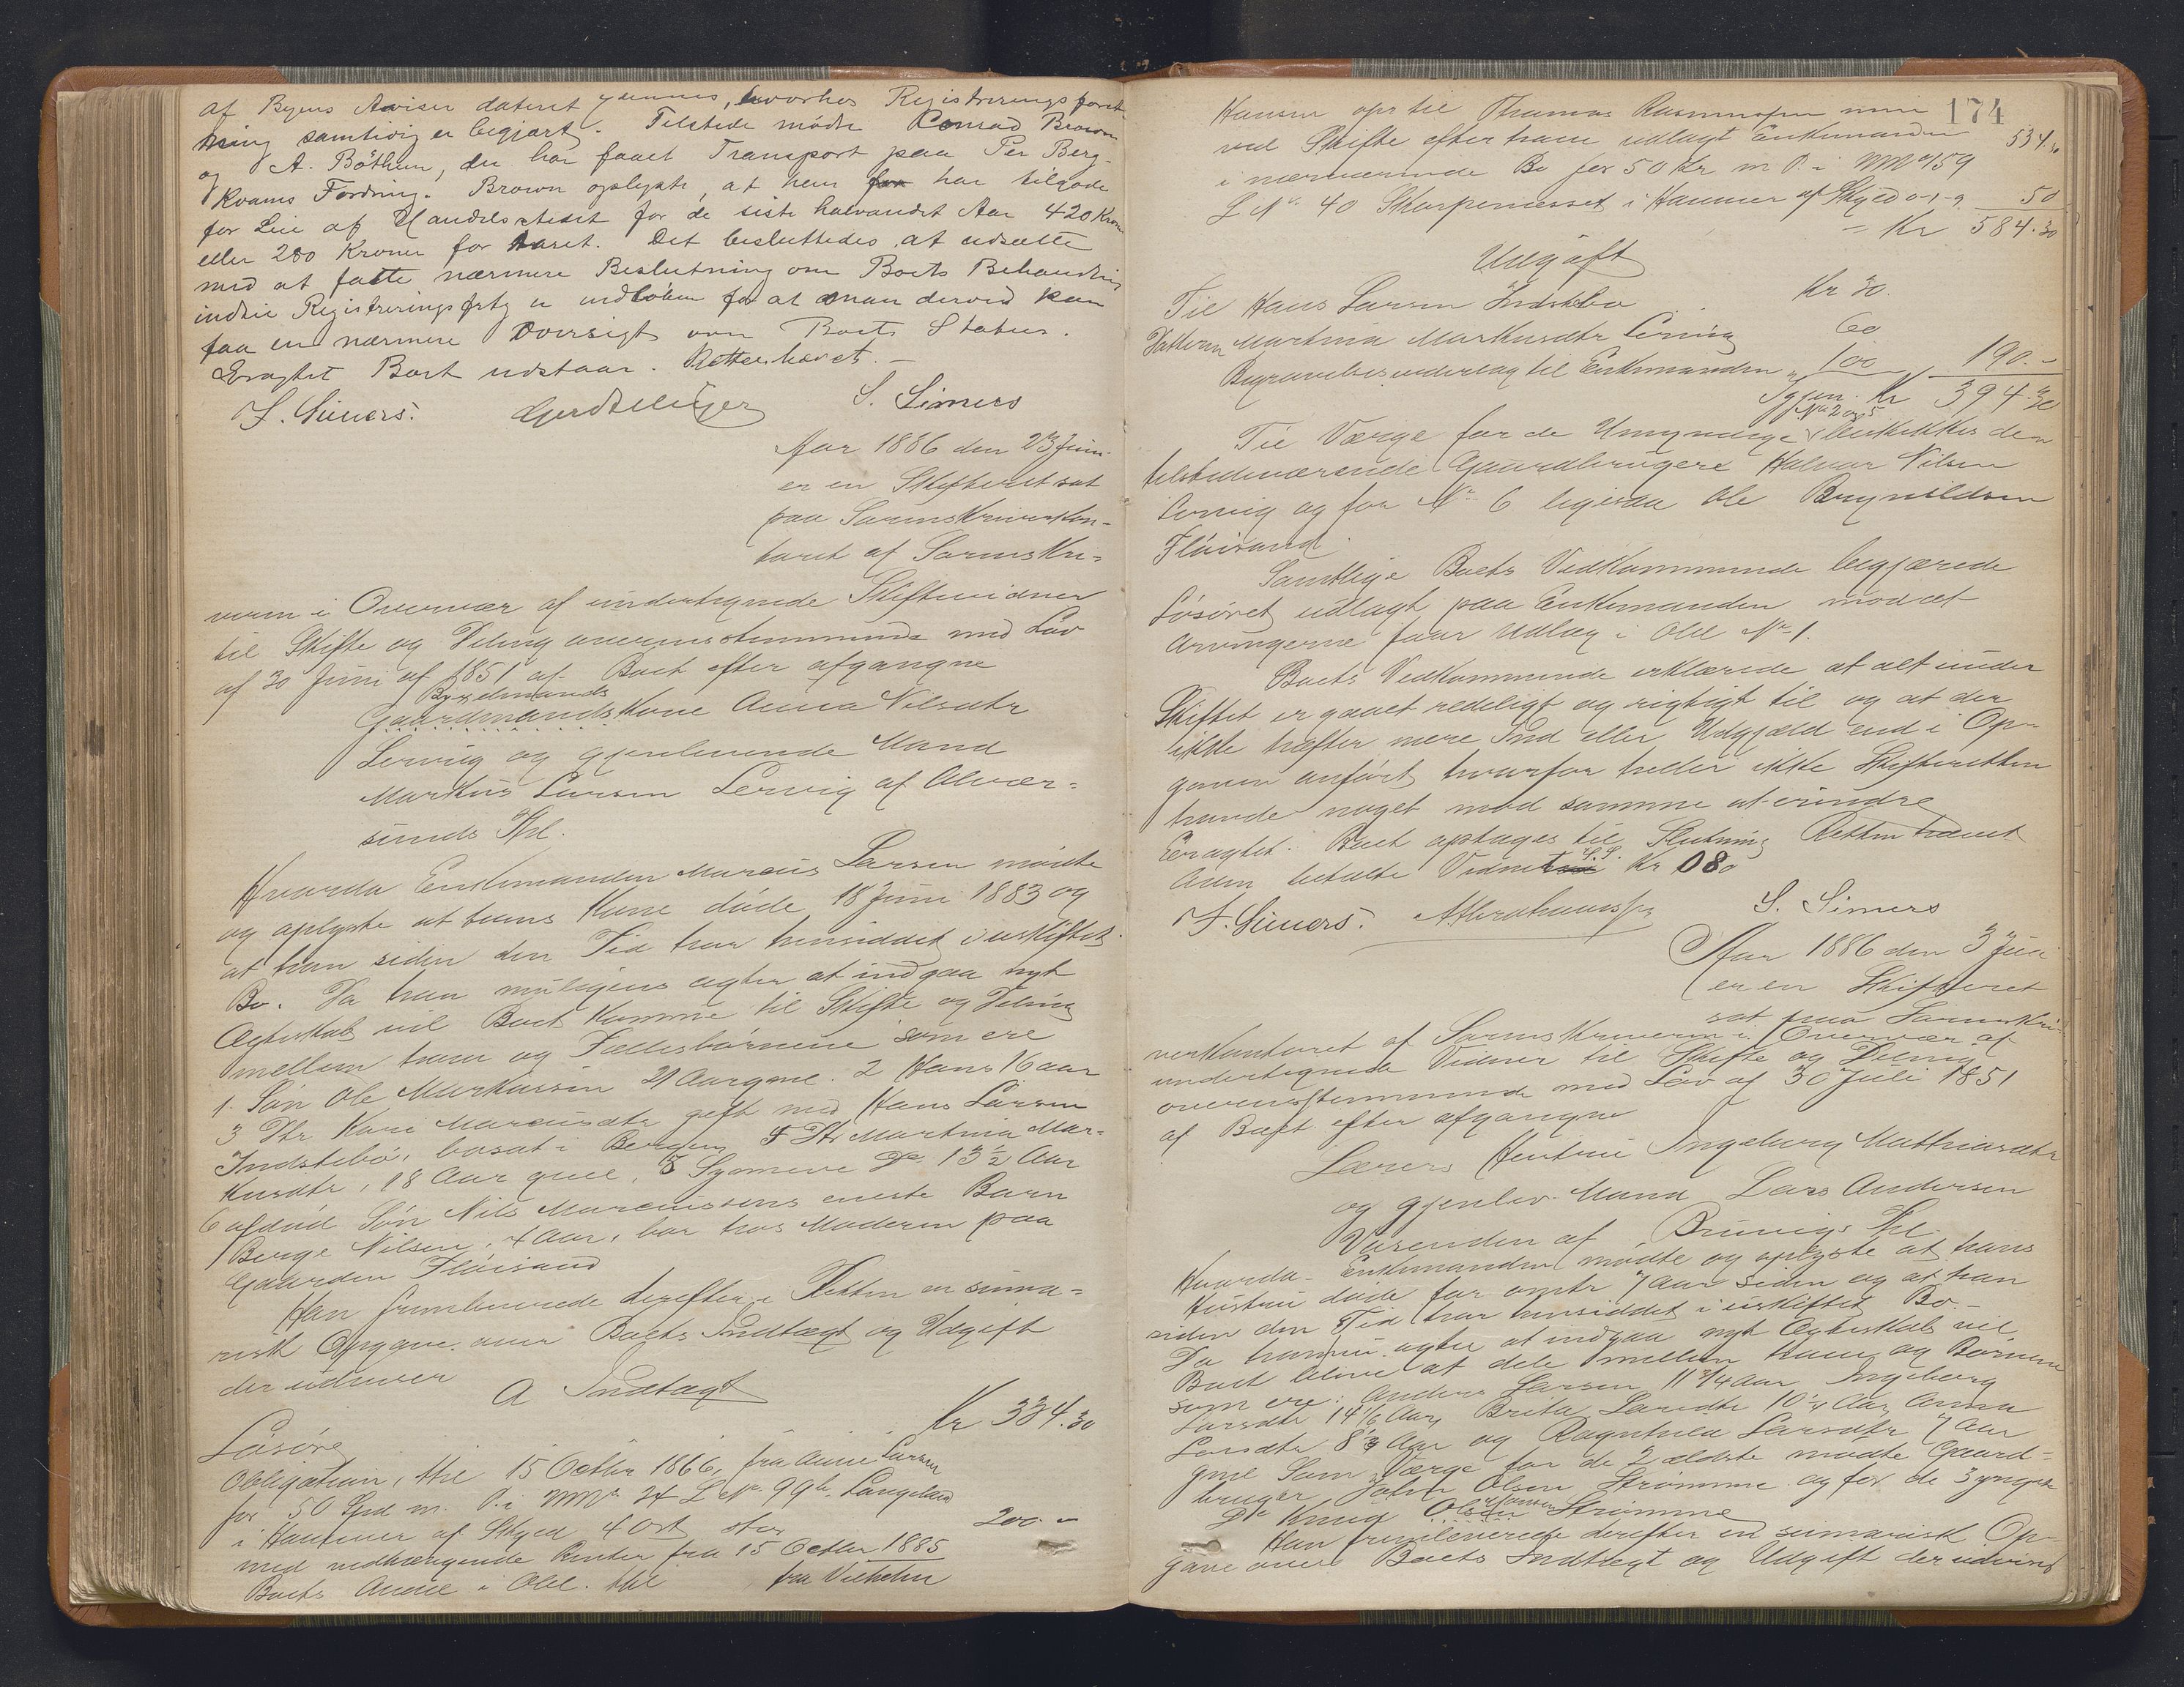 af Byens Aviser dateret ydermes, hvorhos Registreringsforret-
ning samtidig er begjært. Tilstede mødte Conrad Brown
og A. Böthun, der har faaet Transport paa Per Berg-
kvams Fordring. Brown oplyste, at hem har tilgode
for Leie af Handelsstedet for de siste halvandet Aar 420 Kron
eller 280 Kroner for Aaret. Det besluttedes at udsætte
med at fatte nærmere Beslutning om Boets Behandling
indtil Registreringsfrtg er indløben for at man derved kan
faa en nærmere Oversigt over Boets Status.
Eragtet Boet udstaar. Retten hævet.—
F. Simers. S. Simers
Aar 1886 den 23 Juni
er en Skifteret sat
paa Sorenskriverkon-
toret af Sorenskri-
veren i Overvær af undertegnede Skiftevidner
til Skifte og Deling overensstemmende med Lov
af 30 Juni af 1851 af Boet efter afgangne
Bygselmands
Gaardmandskone Anna Nilsdtr
Lervig og gjenlevende Mand
Markus Larsen Lervig af Alvær-
sunds Thl.
Hvorda Enkemanden Marcus Larsen mødte
og oplyste at hans Kone døde 18 Juni 1883 og
at han siden den Tid har hensiddet i uskiftet
Bo. Da han muligens agter at indgaa nyt
Ægteskab vil Boet komme til Skifte og Deling
mellem ham og Fællesbørnene som ere
1. Søn Ole Markussen 21 Aar gml. 2 Hans 16 aar
3 Dtr Kari Marcusdtr gift med Hans Larsen
Indstebø, bosat i Bergen, 4 Dtr Martina Mar-
kusdtr, 18 Aar gml, 5 Synneve Do 13½ Aar
6 afdød Søn Nils Marcussens eneste Barn
Berge Nilsen, 4 Aar, bor hos Moderen paa
Gaarden Fløisand
Han fremleverede derefter i Retten en suma-
risk Opgave over Boets Indtægt og Udgift
der udviser
A Indtægt
Løsøre Kr 334.30
Obligation, thl 15 Octbr 1866, fra Anne Larsen
for 50 Spd m. P. i MNo 24 L No 99b Langeland
i Hammer af Skyld 4 Ort
med vedhængende Renter fra 15 Octbr 1885 200.—
Boets Andel i Obl. thl fra Vilhelm
174
Hansen opr til Thomas Rasmussen min
ved Skifte efter ham udlagt Enkemanden 534.30
i nærværende Bo for 50 Kr m P. i MNo 159
L No 40 Skarpenesset i Hammer af Skyld 0-1-9 50
— Kr 584.30
Udgift
Til Hans Larsen Indstebø Kr 30.
Datteren Martina Markusdtr Lervig 60
Begravelsesudlæg til Enkemanden 100 190.—
Igjen Kr 394.30
No 2 og 5
Til Værge for de Umyndige beskikkes den
tilstedeværende Gaardbrugere Halvor Nilsen
Lervig og for No 6 ligesaa Ole Brynildsen
Fløisand.
Samtlige Boets Vedkommende begjærede
Løsøret udlagt paa Enkemanden mod at
Arvingerne faar Udlæg i Obl No 1.
Boets Vedkommende erklærede at alt under
Skiftet er gaaet redeligt og rigtigt til og at der
ikke hæfter mere Ind eller Udgjæld end i Op-
gaven anført, hvorfor heller ikke Skifteretten
havde noget mod samme at erindre
Eragtet. Boet optages til Slutning Retten hævet
S.S.
Aden betalte Vidne Kr 080
F. Simers. S. Simers
Aar 1886 den 3 Juli
er en Skifteret
sat paa Sorenskri-
verkontoret af Sorenskriveren i Overvær af
undertegnede Vidner til Skifte og Deling
overensstemmende med Lov af 30 Juli 1851
af Boet efter afgangne
Lærers Hustru Ingeborg Mathiasdtr
og gjenlev. Mand Lars Andersen
af Bruvigs Thl.
Hvorda Enkemanden mødte og oplyste at hans
Hustru døde for omtr 7 Aar siden og at han
siden den Tid har hensiddet i uskiftet Bo.—
Da han nu agter at indgaa nyt Ægteskab vil
Boet blive at dele mellem ham og Børnene
som ere: Anders Larsen 11¾ Aar Ingeborg
Larsdtr 14 1/6 Aar, Brita Larsdtr 10¼ Aar, Anna
Larsdtr 8¾ Aar og Ragnhild Larsdtr 7 Aar
gml Som Værge for de 2 ældste mødte Gaard-
bruger John Olsen Strømme og for de 3 yngste
Do Knud Olsen Strømme
Han fremleverede derefter en sumarisk Op-
gave over Boets Indtægt og Udgift der udviser